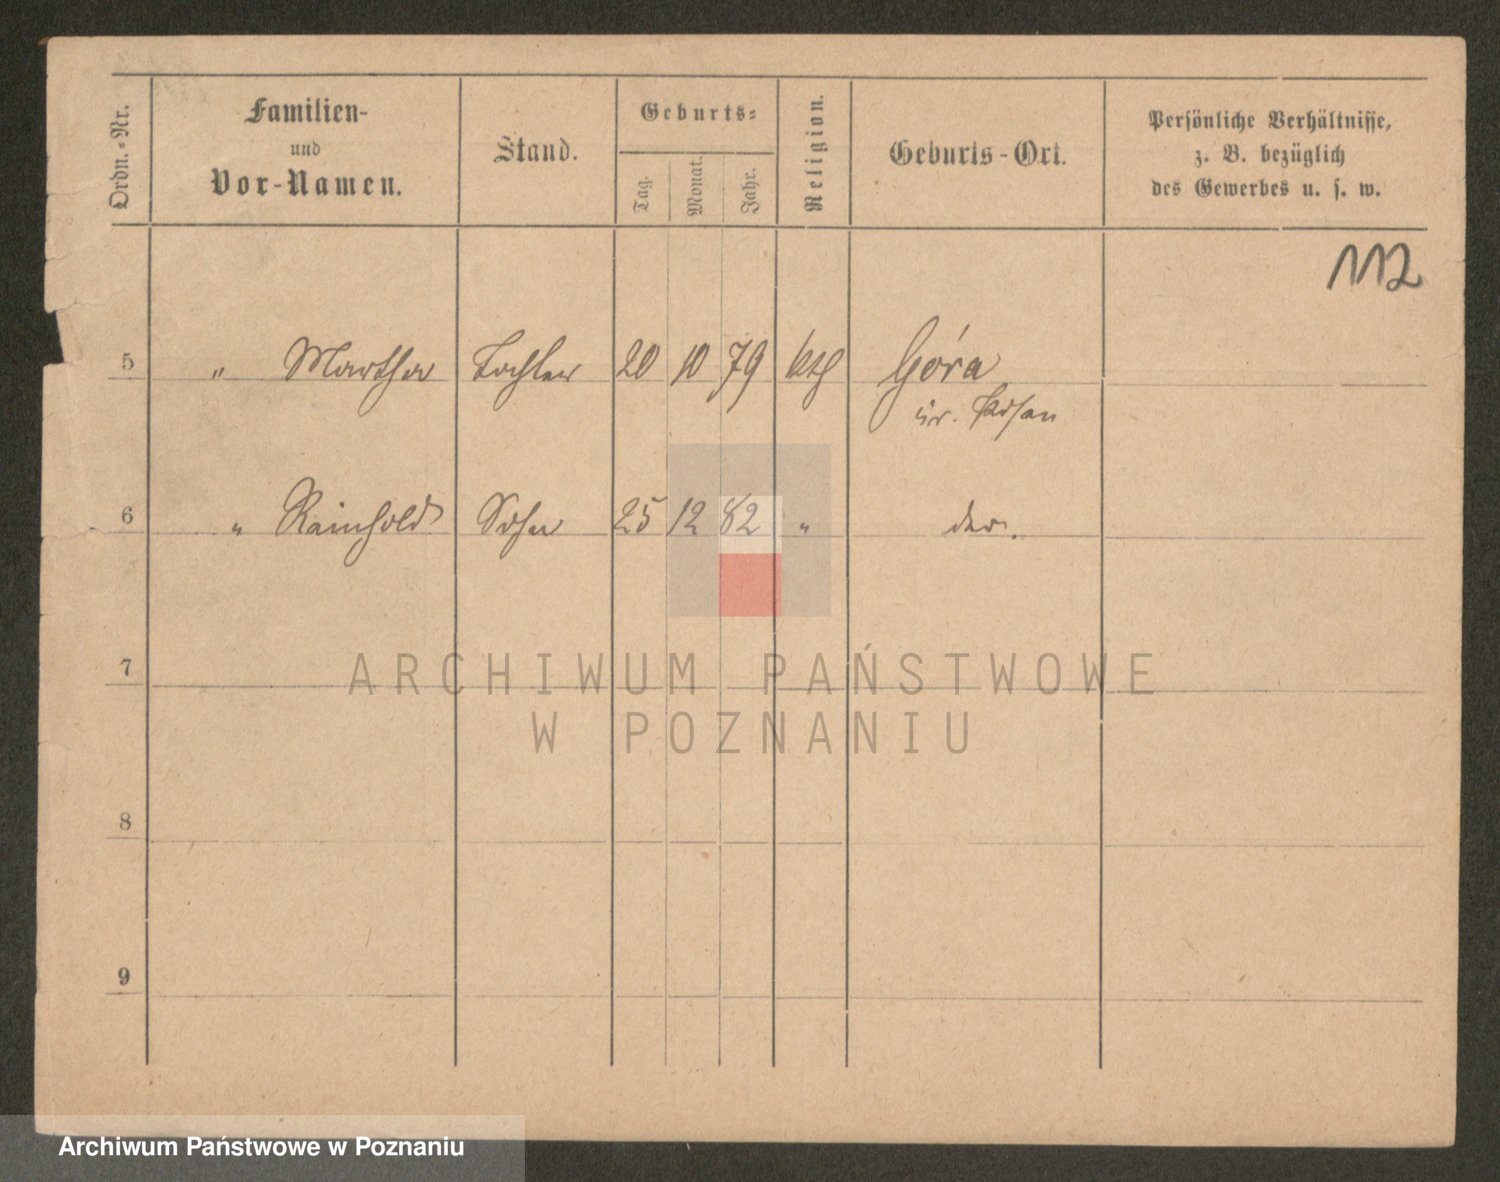 Ordn.-Nr.
Familien-
und
Vor-Namen.
Stand.
Geburts-
Tag.
Monat.
Jahr.
Religion.
Geburts-Ort.
Persönliche Verhältnisse,
z. B. bezüglich
des Gewerbes u. s. w.
112
5 " Martha Tochter 20 10 79 kth Góra
Kr. Posen
6 " Reinhold Sohn 25 12 82 "
7
ARCHIWUM PAŃSTWOWE
W POZNANIU
8
9
Archiwum Państwowe w Poznaniu